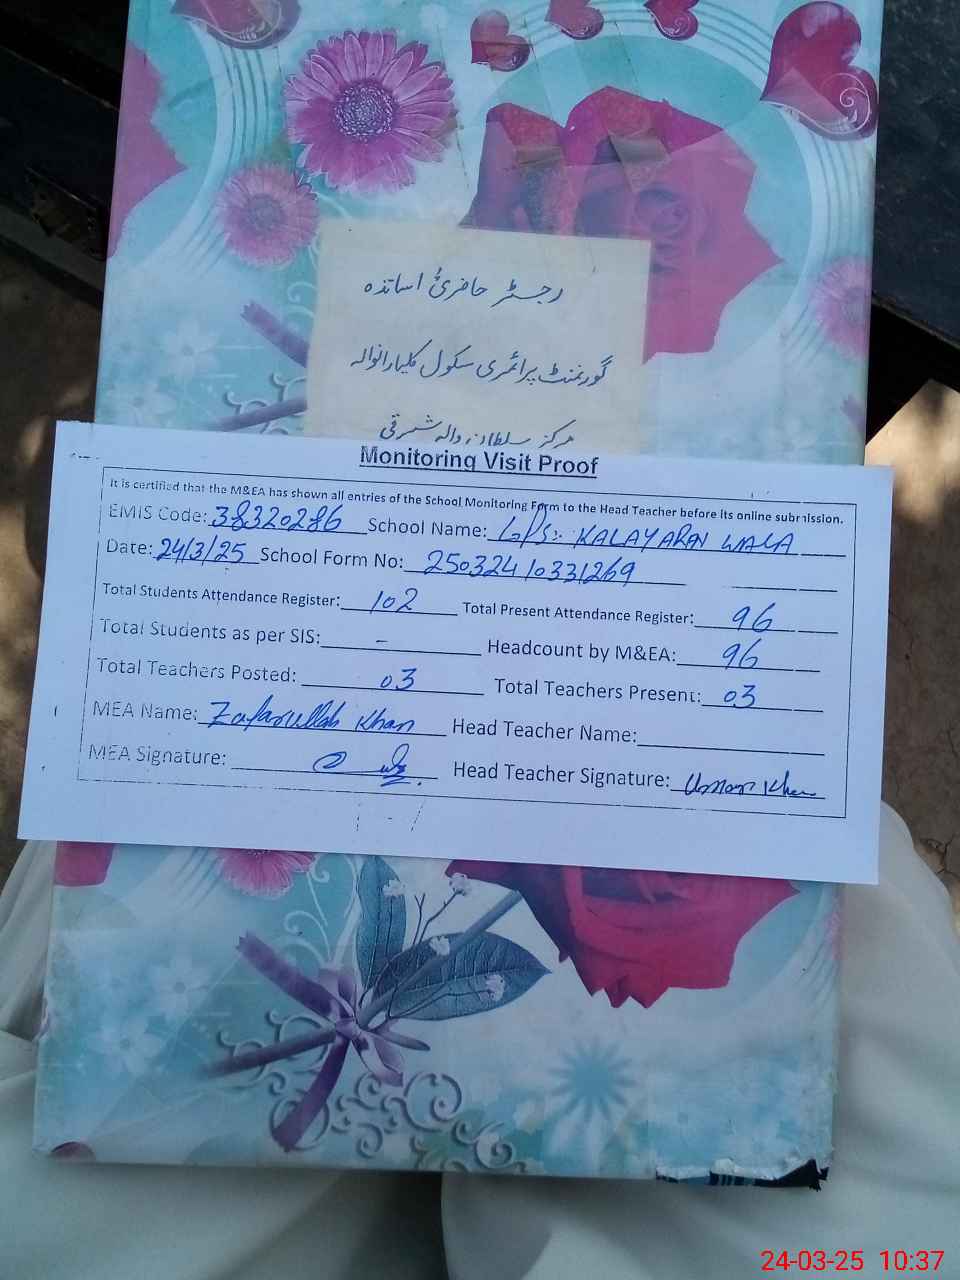 رجسٹر حاضری اساتذہ
گورنمنٹ پرائمری سکول کلیارانوالہ
مرکز سلطان والہ شرقی
Monitoring Visit Proof
It is certified that the M&EA has shown all entries of the School Monitoring Form to the Head Teacher before its online submission.
EMIS Code: 38320286 School Name: G/P/S: KALAYARAN WALA
Date: 24/3/25 School Form No: 25032410331269
Total Students Attendance Register: 102 Total Present Attendance Register: 96
Total Students as per SIS: - Headcount by M&EA: 96
Total Teachers Posted: 03 Total Teachers Present: 03
MEA Name: Zafarullah Khan Head Teacher Name:
MEA Signature: Head Teacher Signature: Usman Khan
24-03-25 10:37